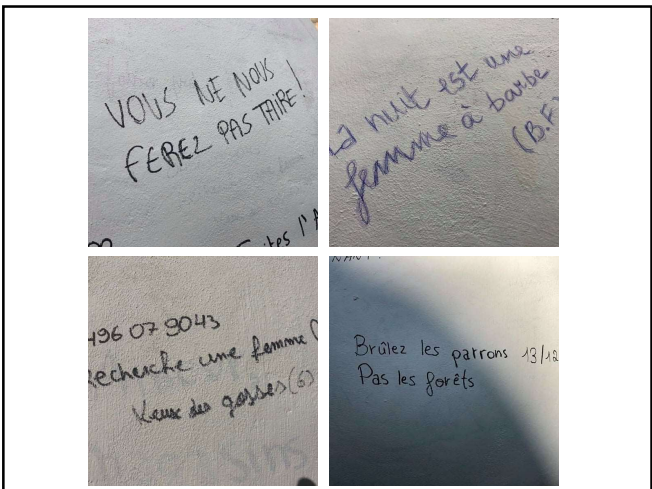 VOUS NE NOUS
FEREZ PAS TAIRE!
La nuit est une
femme à barbe
(B.F)
496 07 9043
Recherche une femme
Veux des gosses (6)
Brûlez les patrons 13/12
Pas les forêts